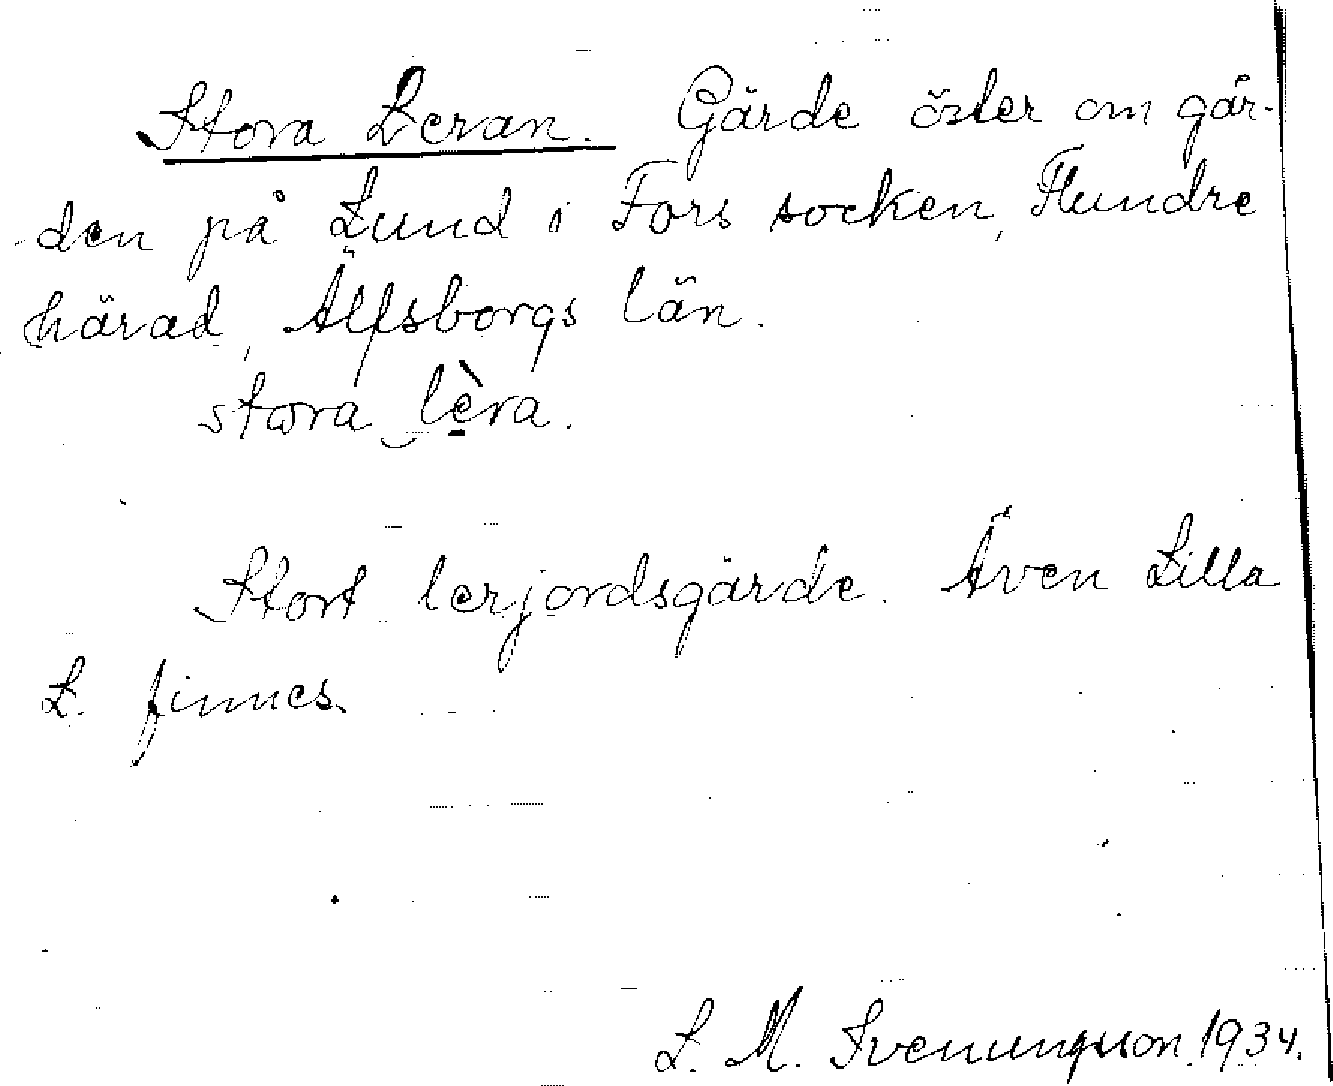 Stora Leran. Gärde öster om går-
den på Lund i Fors socken, Flundre
härad, Älfsborgs län.
stora lèra.
Stort lerjordsgärde. Även Lilla
L. finnes.
L. M. Svenungsson 1934.